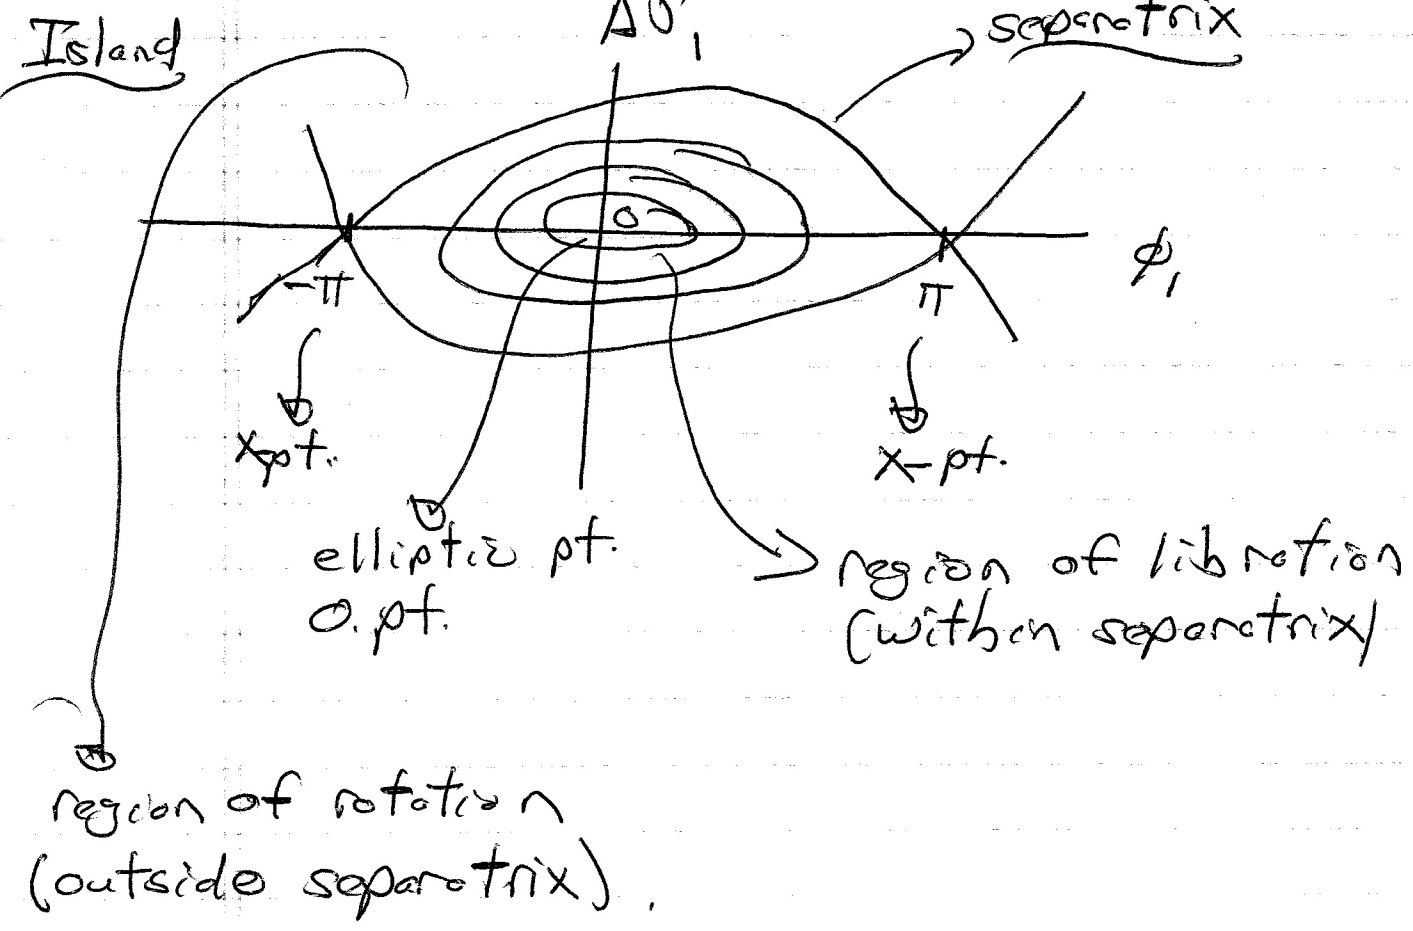 Island
separatrix
-π
π
φ₁
x-pt.
x-pt.
elliptic pt.
o.pt.
region of libration
(within separatrix)
region of rotation
(outside separatrix).